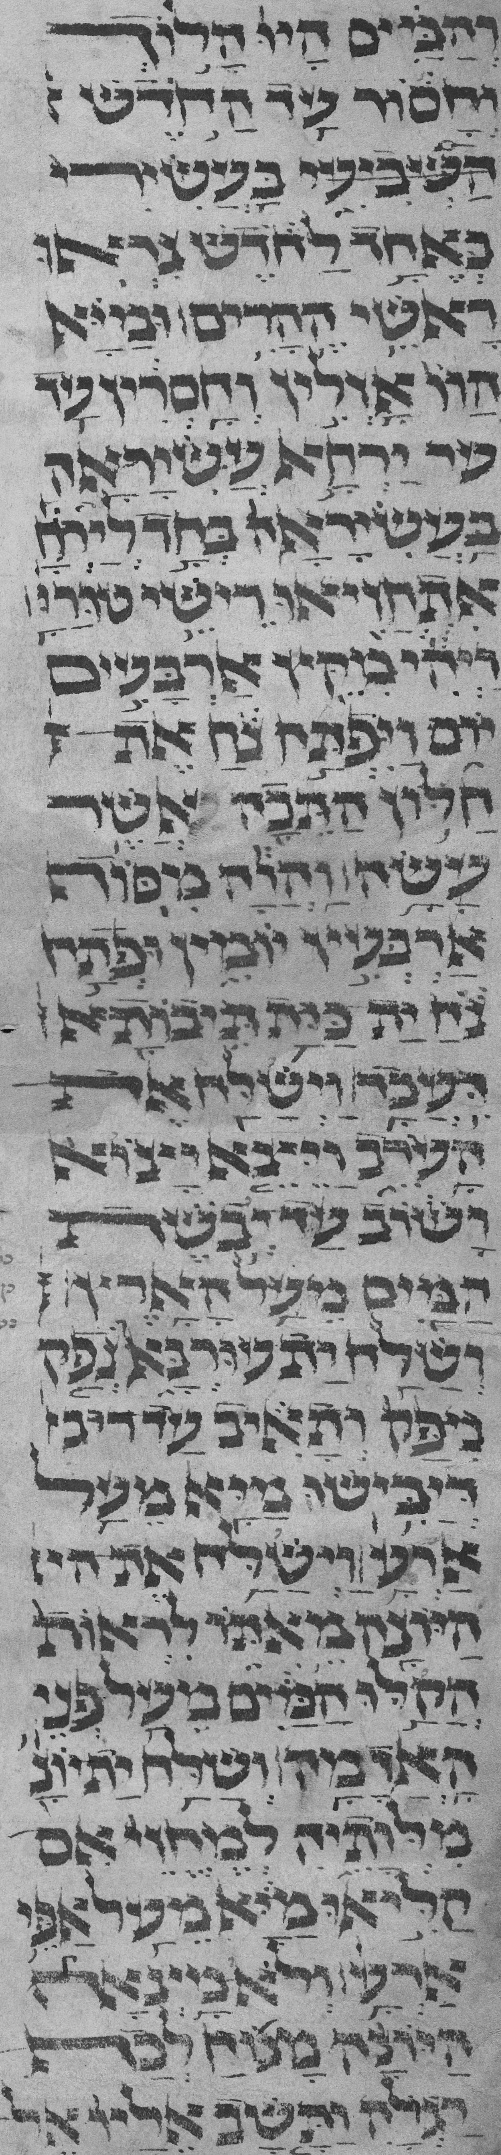 והמים היו הלוך
וחסור עד החדש
השביעי בעשירי
באחד לחדש נראו
ראשי ההרים ומיא
הוו אזלין וחסרין עד
ירחא עשיראה
בעשיראה בחד לירח
אתחזיאו רישי טוריי
ויהי מקץ ארבעים
יום ויפתח נח את
חלון התבה אשר
עשה והוה מסוף
ארבעין יומין ופתח
נח ית כות תיבותא
דעבד וישלח את
הערב ויצא יצוא
ושוב עד יבשת
המים מעל הארץ
ושלח ית עורבא נפק
מפק ותאיב עד דיבי
דיבישו מיא מעל
ארעא וישלח את היו
היונה מאתו לראות
הקלו המים מעל פני
האדמה ושלח ית יונ
מלותיה למחזי אם
קליאו מיא מעל אפי
ארעא ולא מצאה
היונה מנוח לכף
רגלה ותשב אליו אל